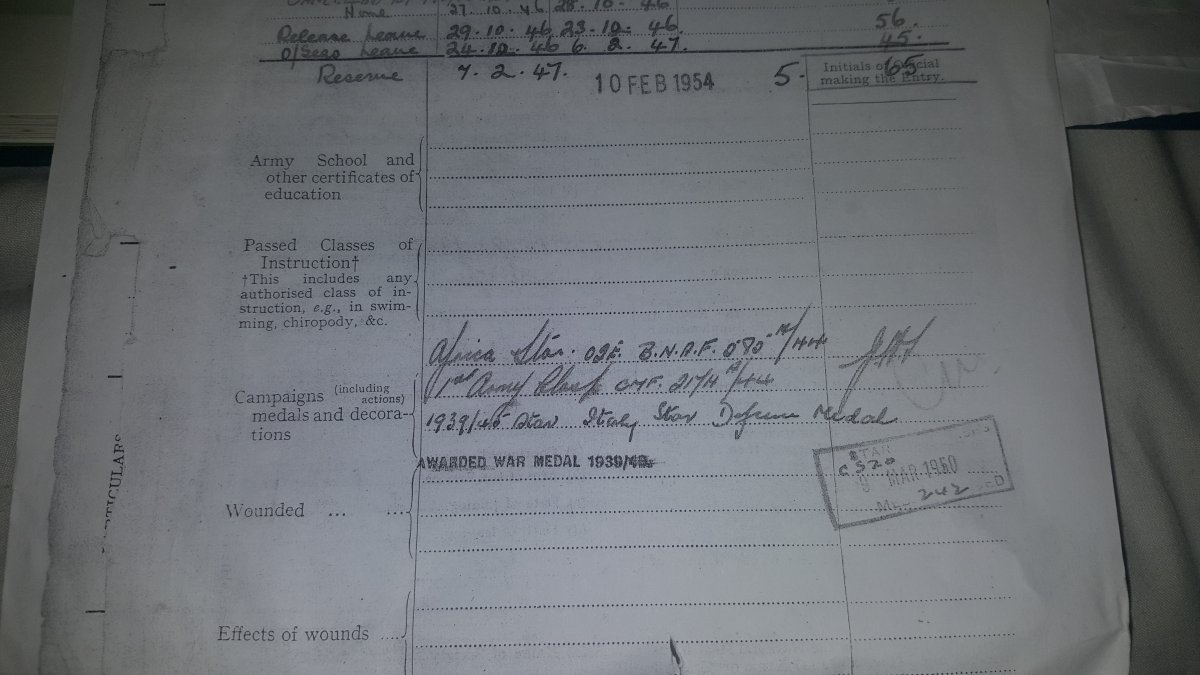 Home 27. 10. 46 28. 10. 46
Release Leave 29. 10. 46 23. 12. 46 56.
O/Seas Leave 24. 12. 46 6. 2. 47. 45.
Reserve 7. 2. 47. 10 FEB 1954 5. 65
Initials of Official
making the Entry.
Army School and
other certificates of
education
Passed Classes of
Instruction†
†This includes any
authorised class of in-
struction, e.g., in swim-
ming, chiropody, &c.
Africa Star. B.N.A.F. /44
1st Army Clasp CMF. 217/4 /44
Campaigns (including
actions)
medals and decora-
tions
1939/45 Star Italy Star Defence Medal
AWARDED WAR MEDAL 1939/45.
STAR
C520
9 MAR 1950
242
Wounded ... ...
Effects of wounds ....
PARTICULARS